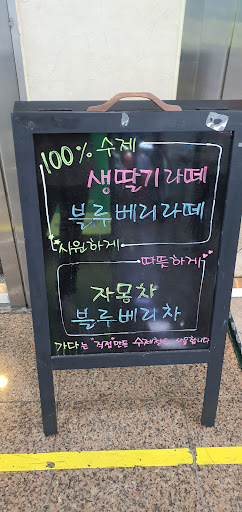 100% 수제
생딸기라떼
블루베리라떼
시원하게
따뜻하게
자몽차
블루베리차
가다는 "직접"만든 수제청을 사용합니다